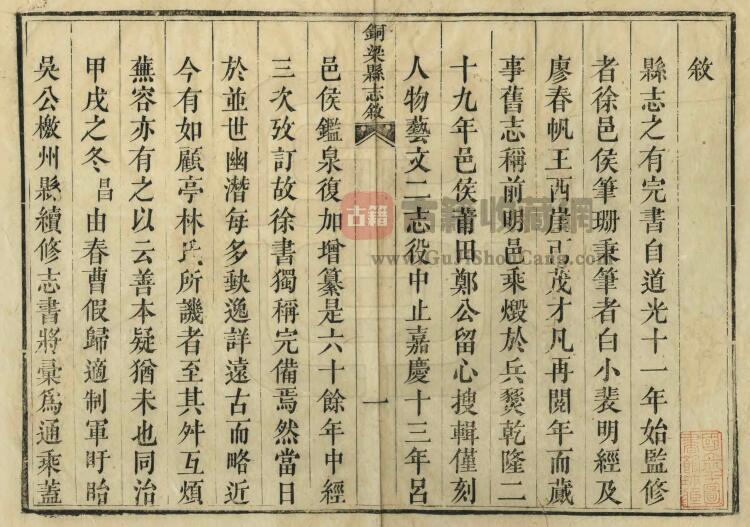 敘
縣志之有完書自道光十一年始監修
者徐邑侯筆珊秉筆者白小裴明經及
廖春帆王西崖二茂才凡再閱年而蕆
事舊志稱前明邑乘燬於兵燹乾隆二
十九年邑侯莆田鄭公留心搜輯僅刻
人物藝文二志役中止嘉慶十三年呂
銅梁縣志敘
一
邑侯鑑泉復加增纂是六十餘年中經
三次攷訂故徐書獨稱完備焉然當日
於並世幽潛每多缺逸詳遠古而略近
今有如顧亭林氏所譏者至其舛互煩
蕪容亦有之以云善本疑猶未也同治
甲戌之冬昌由春曹假歸適制軍盱眙
吳公檄州縣續修志書將彙為通乘蓋
古籍
古籍收藏网
www.GuJiShouCang.com